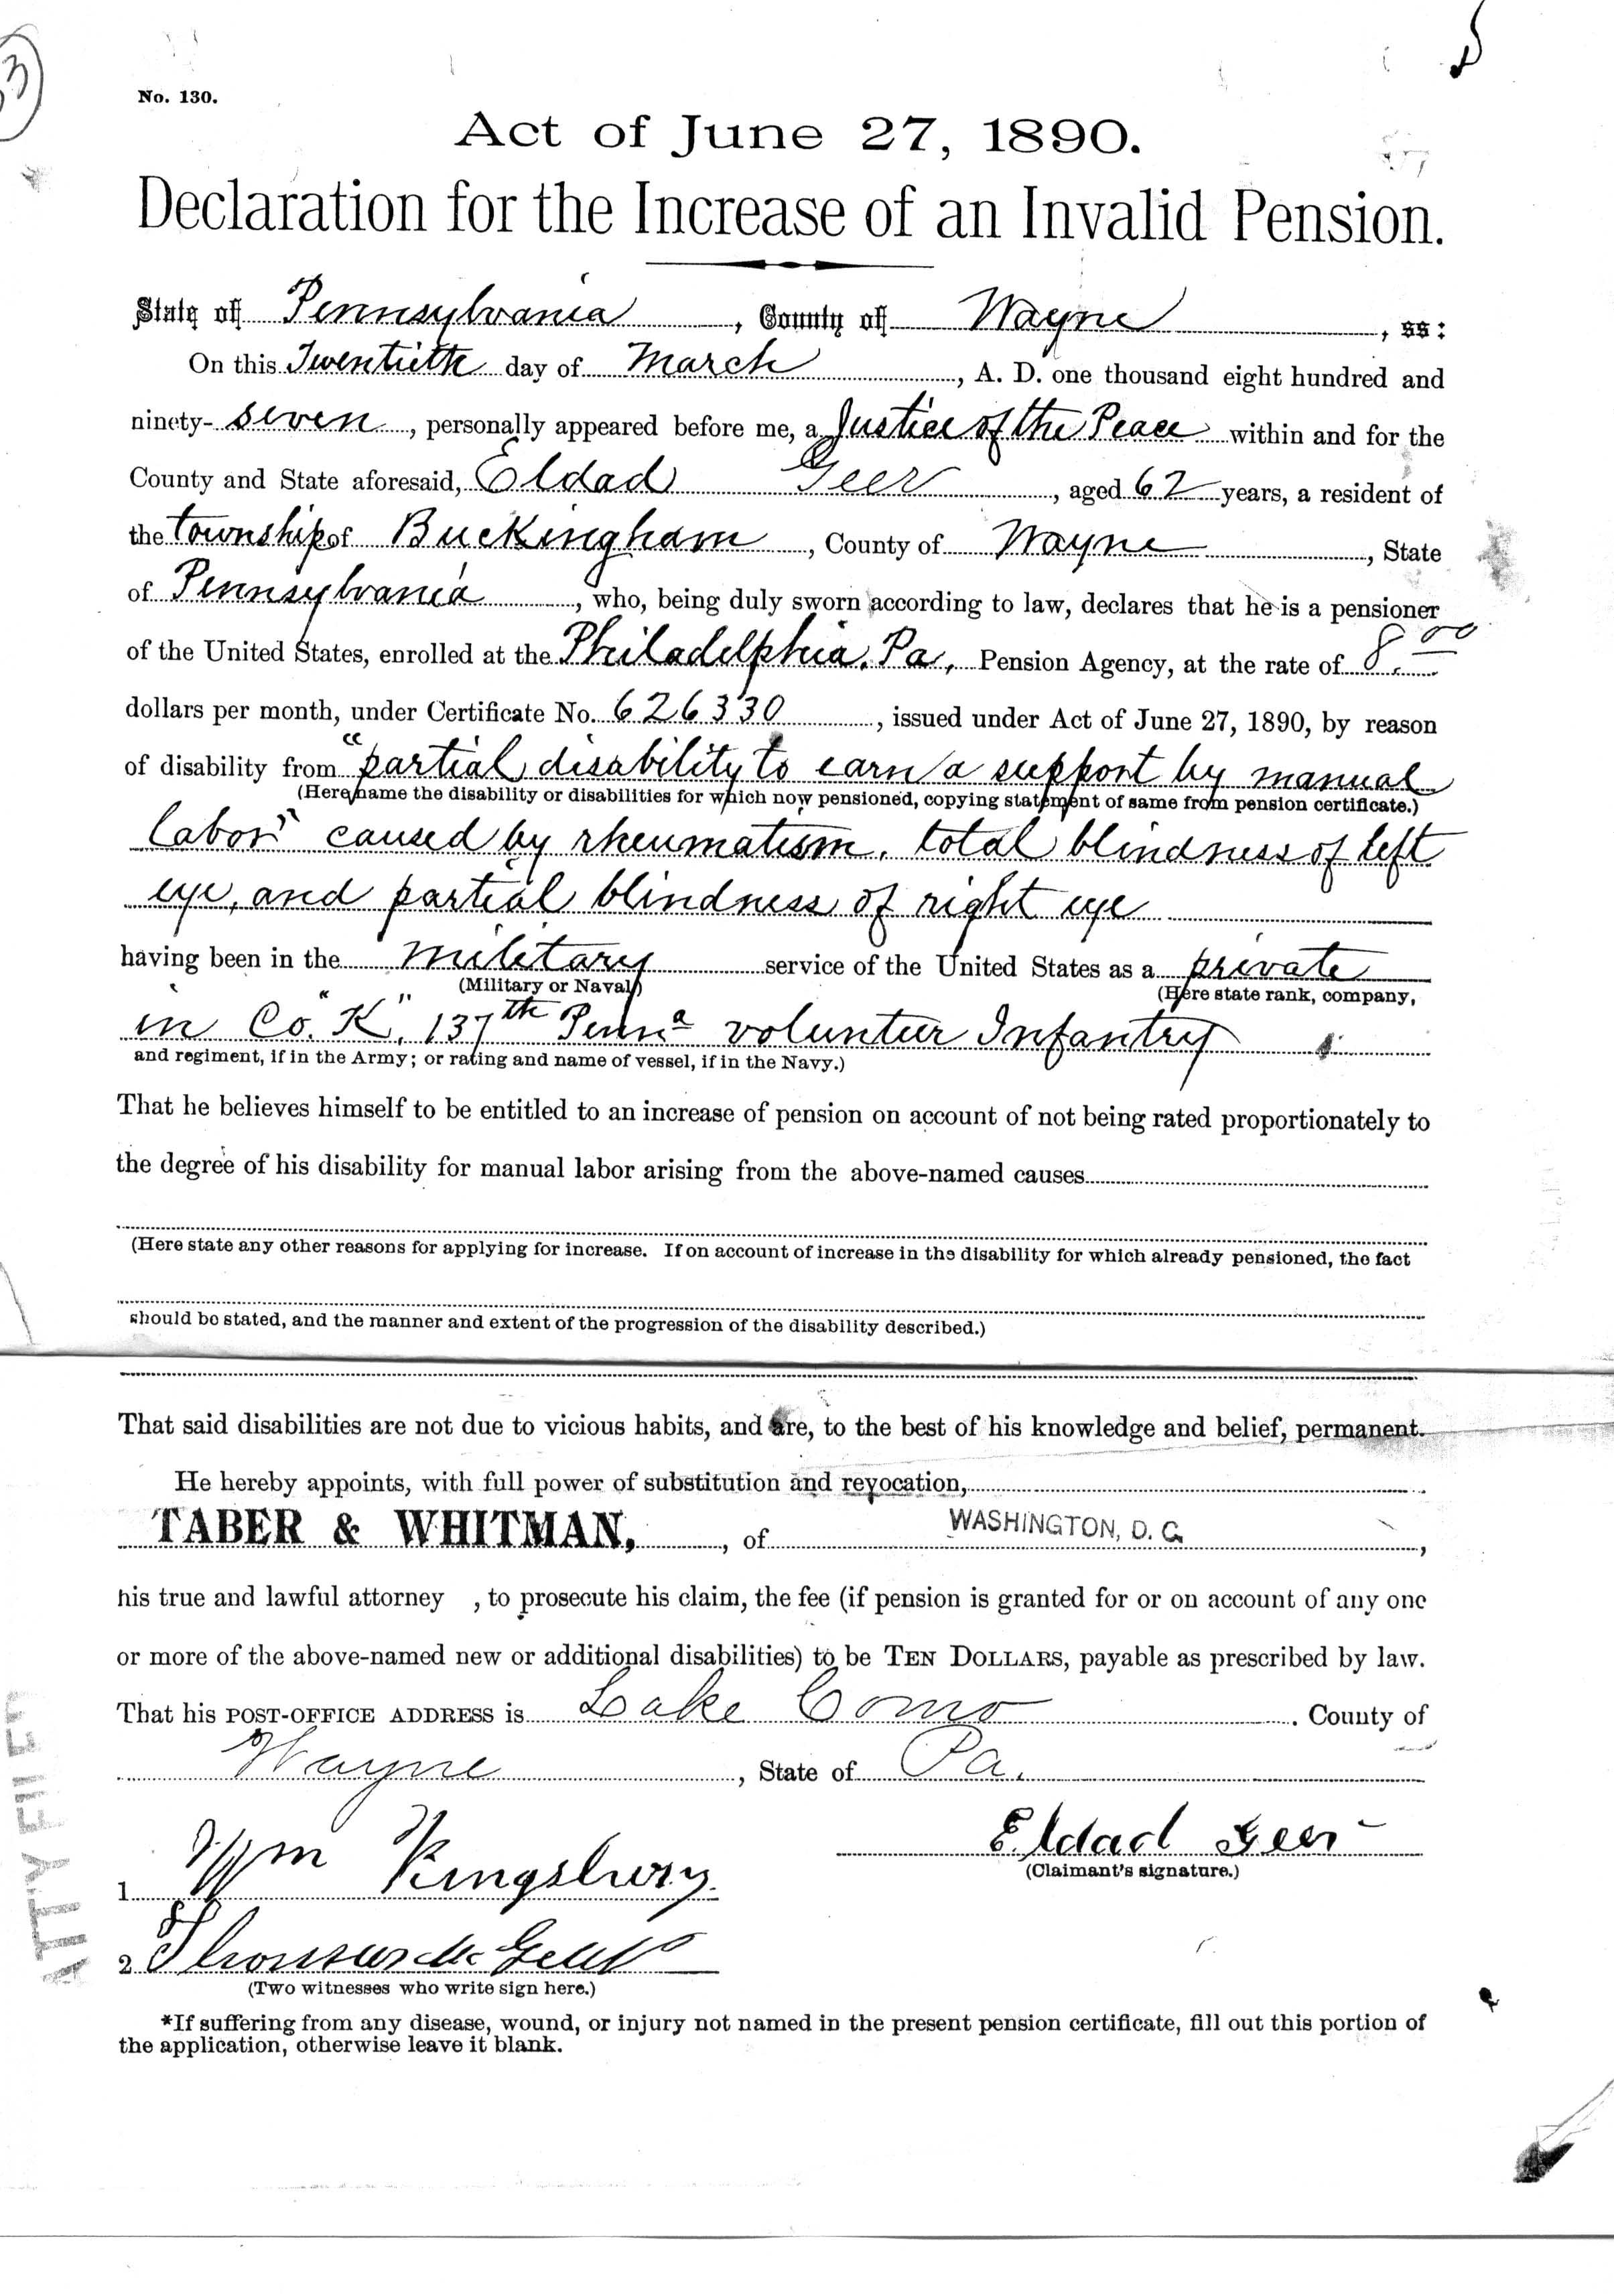 No. 130.
Act of June 27, 1890.
Declaration for the Increase of an Invalid Pension.
State of Pennsylvania, County of Wayne, ss:
On this Twentieth day of March, A. D. one thousand eight hundred and
ninety-seven, personally appeared before me, a Justice of the Peace within and for the
County and State aforesaid, Eldad Geer, aged 62 years, a resident of
the township of Buckingham, County of Wayne, State
of Pennsylvania, who, being duly sworn according to law, declares that he is a pensioner
of the United States, enrolled at the Philadelphia, Pa, Pension Agency, at the rate of 8.00
dollars per month, under Certificate No. 626330, issued under Act of June 27, 1890, by reason
of disability from "partial disability to earn a support by manual
(Here name the disability or disabilities for which now pensioned, copying statement of same from pension certificate.)
labor" caused by rheumatism, total blindness of left
eye, and partial blindness of right eye
having been in the military service of the United States as a private
(Military or Naval) (Here state rank, company,
in Co. "K", 137th Penna volunteer Infantry
and regiment, if in the Army; or rating and name of vessel, if in the Navy.)
That he believes himself to be entitled to an increase of pension on account of not being rated proportionately to
the degree of his disability for manual labor arising from the above-named causes
(Here state any other reasons for applying for increase. If on account of increase in the disability for which already pensioned, the fact
should be stated, and the manner and extent of the progression of the disability described.)
That said disabilities are not due to vicious habits, and are, to the best of his knowledge and belief, permanent.
He hereby appoints, with full power of substitution and revocation,
TABER & WHITMAN, of WASHINGTON, D. C.,
his true and lawful attorney , to prosecute his claim, the fee (if pension is granted for or on account of any one
or more of the above-named new or additional disabilities) to be TEN DOLLARS, payable as prescribed by law.
That his POST-OFFICE ADDRESS is Lake Como. County of
Wayne, State of Pa.
Eldad Geer
(Claimant's signature.)
1 Wm Kingsbury
2 Thomas
(Two witnesses who write sign here.)
*If suffering from any disease, wound, or injury not named in the present pension certificate, fill out this portion of
the application, otherwise leave it blank.
ATTY